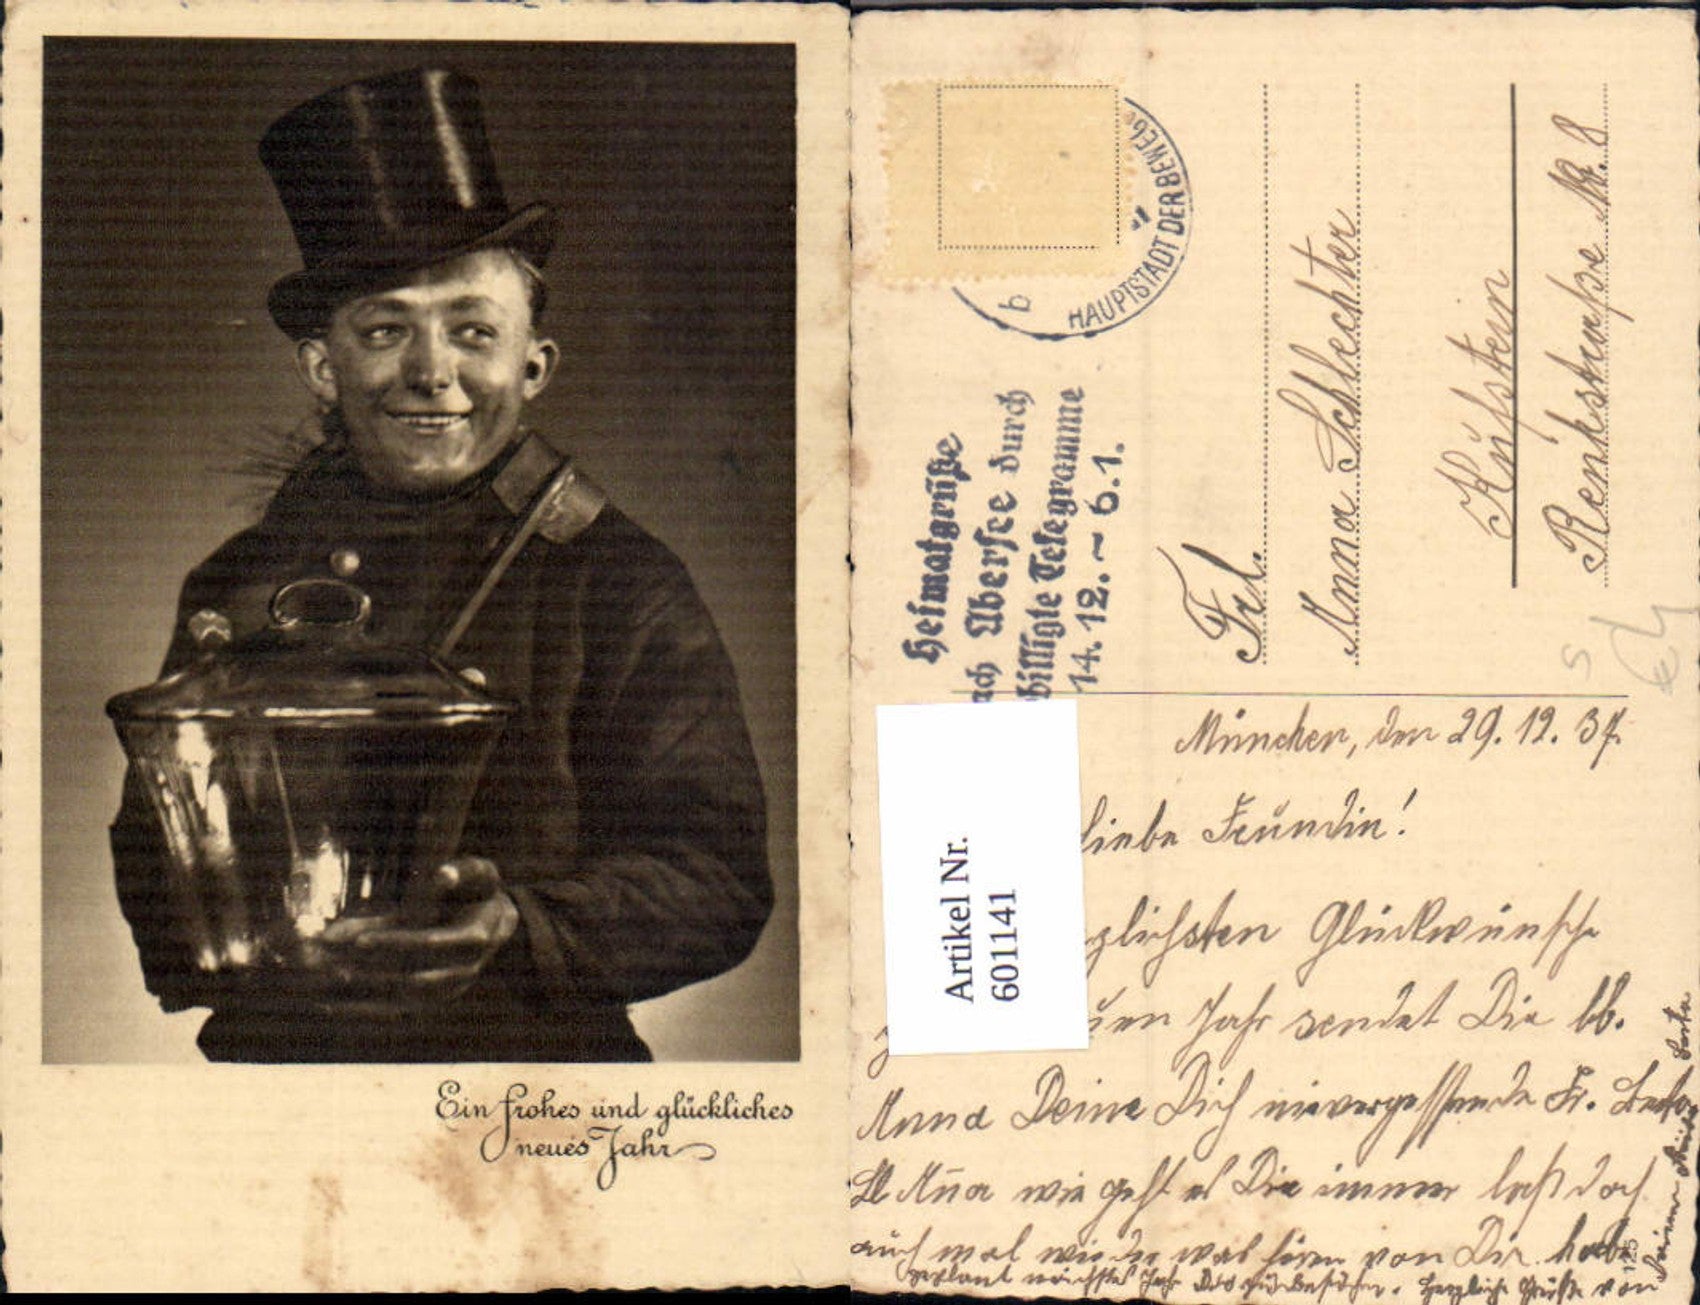 Ein frohes und glückliches
neues Jahr
HAUPTSTADT DER BEWEG
b
Heimatgrüße
ach Übersee durch
billigte Telegramme
14. 12. ~ 6. 1.
Frl.
Anna Schlechter
Kufstein
Artikel Nr.
601141
München, den 29. 12. 37.
liebe Freundin!
zlichsten Glückwünsche
Jahr sendet Dir
Anna Deine Dich nievergessende Fr.
wie geht es Dir immer laß doch
auch mal wieder was hören von Dir. habe
nächstes Jahr Herzliche Grüße von
125